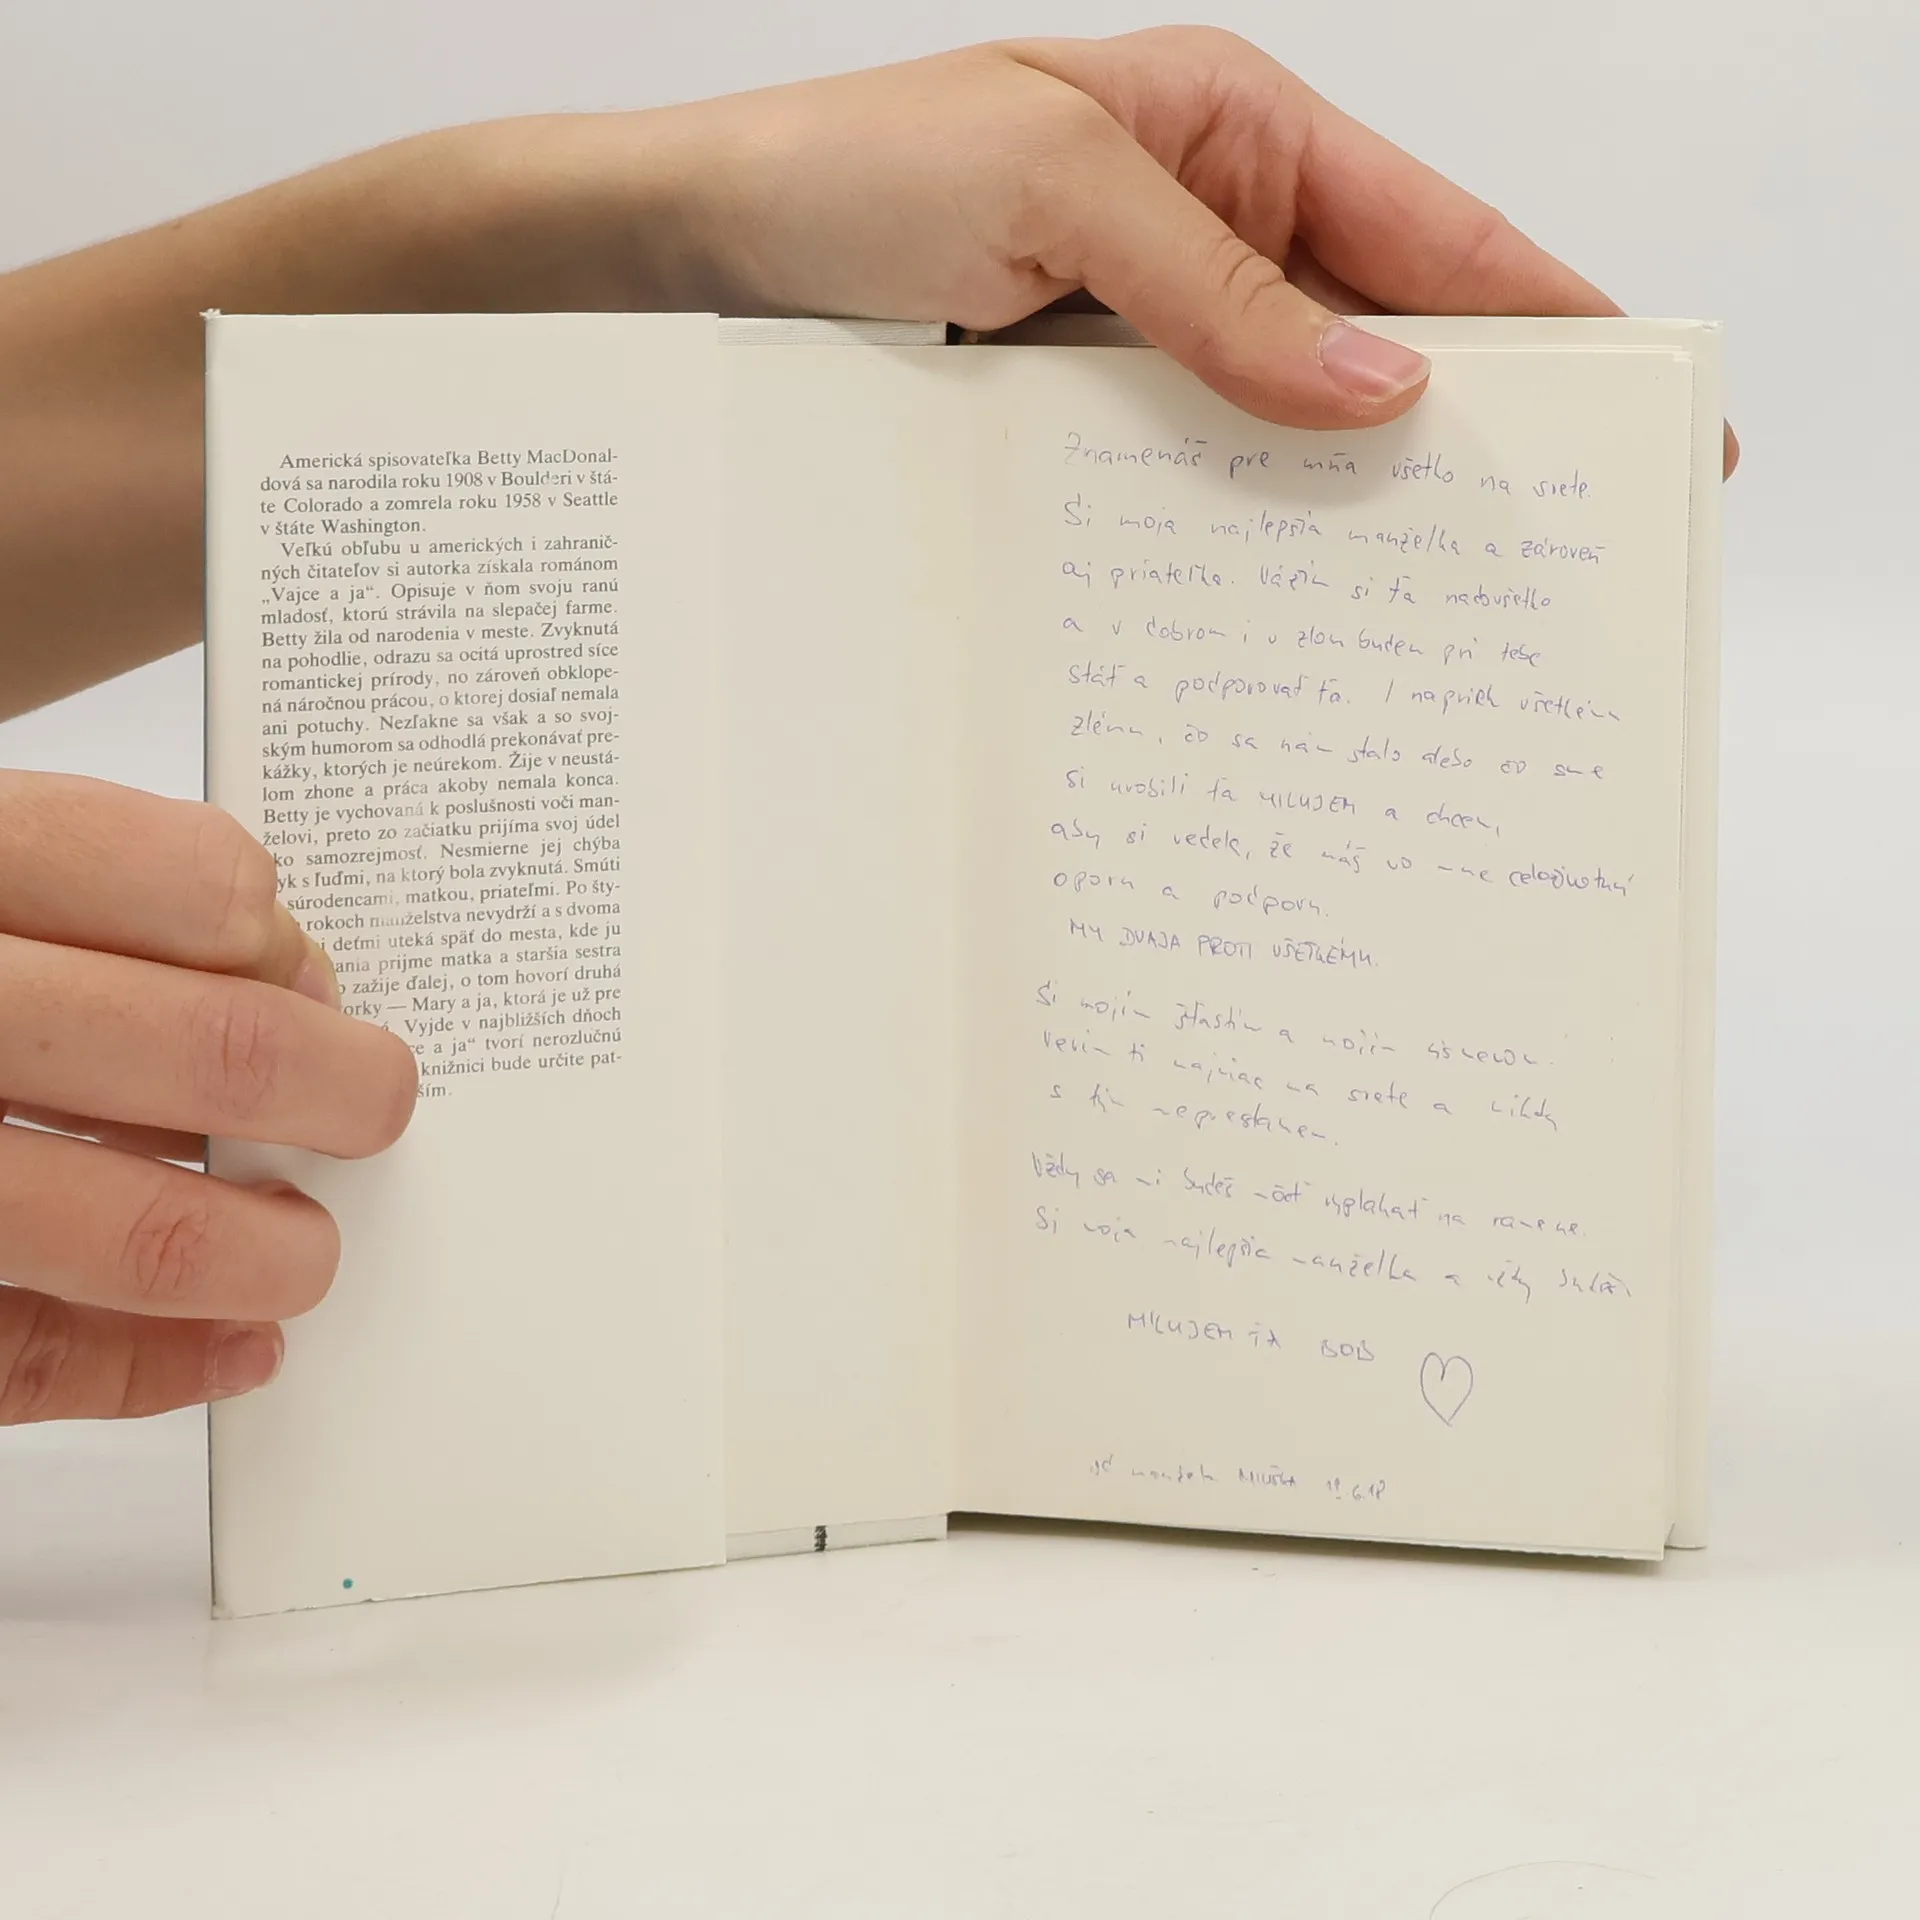 Americká spisovateľka Betty MacDonal-
dová sa narodila roku 1908 v Boulderi v štá-
te Colorado a zomrela roku 1958 v Seattle
v štáte Washington.
Veľkú obľubu u amerických i zahranič-
ných čitateľov si autorka získala románom
„Vajce a ja“. Opisuje v ňom svoju ranú
mladosť, ktorú strávila na slepačej farme.
Betty žila od narodenia v meste. Zvyknutá
na pohodlie, odrazu sa ocitá uprostred síce
romantickej prírody, no zároveň obklope-
ná náročnou prácou, o ktorej dosiaľ nemala
ani potuchy. Nezľakne sa však a so svoj-
ským humorom sa odhodlá prekonávať pre-
kážky, ktorých je neúrekom. Žije v neustá-
lom zhone a práca akoby nemala konca.
Betty je vychovaná k poslušnosti voči man-
želovi, preto zo začiatku prijíma svoj údel
ko samozrejmosť. Nesmierne jej chýba
yk s ľuďmi, na ktorý bola zvyknutá. Smúti
súrodencami, matkou, priateľmi. Po šty-
rokoch manželstva nevydrží a s dvoma
i deťmi uteká späť do mesta, kde ju
ania prijme matka a staršia sestra
o zažije ďalej, o tom hovorí druhá
orky — Mary a ja, ktorá je už pre
á. Vyjde v najbližších dňoch
ce a ja“ tvorí nerozlučnú
knižnici bude určite pat-
ším.
Znamenáš pre mňa všetko na svete.
Si moja najlepšia manželka a zároveň
aj priateľka. Vážim si ťa nadovšetko
a v dobrom i v zlom budem pri tebe
stáť a podporovať ťa. I napriek všetkému
zlému, čo sa nám stalo alebo čo sme
si urobili ťa MILUJEM a chcem,
aby si vedela, že máš vo mne celoživotnú
oporu a podporu.
MY DVAJA PROTI VŠETKÉMU.
Si mojím šťastím a mojím úsmevom.
Verím ti najviac na svete a nikdy
s tým neprestanem.
Vždy sa mi budeš môcť vyplakať na ramene.
Si moja najlepšia manželka a vždy budeš.
MILUJEM ŤA BOB
od manžela 6.18